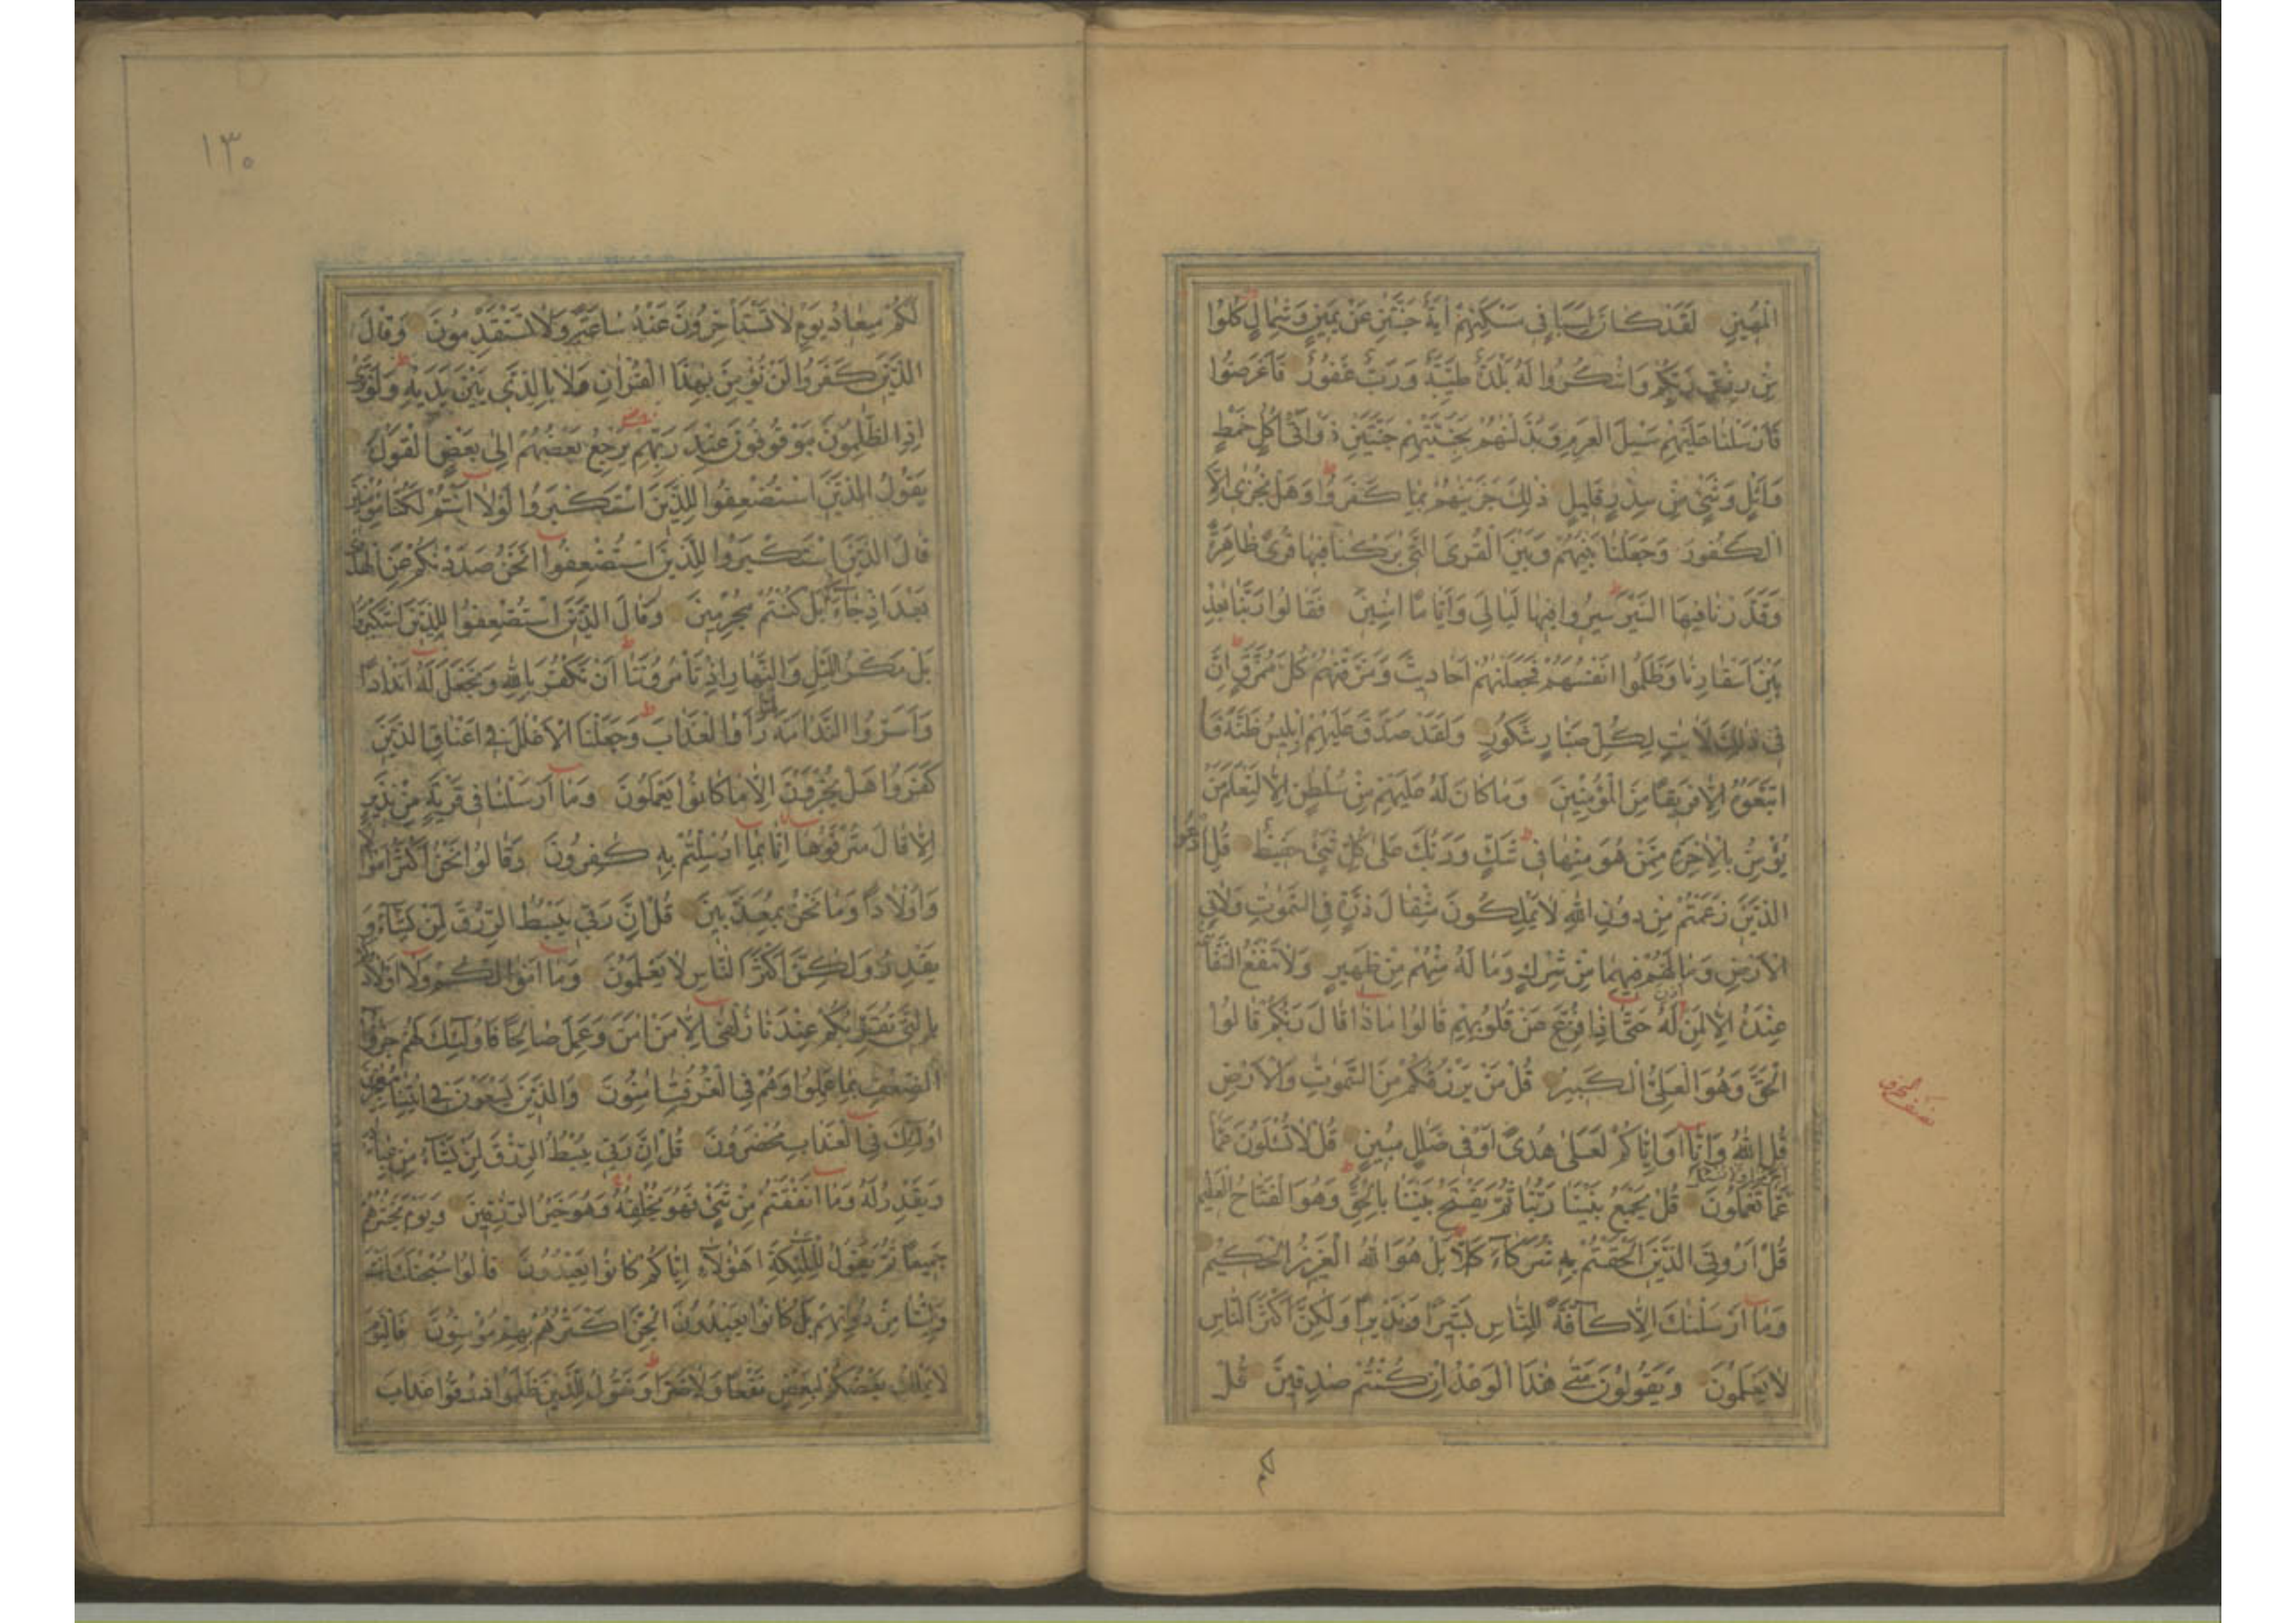 الْمُهِينِ لَقَدْ كَانَ لِسَبَإٍ فِي مَسْكَنِهِمْ اٰيَةٌ جَنَّتَٰنِ عَنْ يَمِينٍ وَشِمَالٍ كُلُوا
مِنْ رِزْقِ رَبِّكُمْ وَاشْكُرُوا لَهُ بَلْدَةٌ طَيِّبَةٌ وَرَبٌّ غَفُورٌ فَأَعْرَضُوا
فَأَرْسَلْنَا عَلَيْهِمْ سَيْلَ الْعَرِمِ وَبَدَّلْنٰهُمْ بِجَنَّتَيْهِمْ جَنَّتَيْنِ ذَوَاتَيْ أُكُلٍ خَمْطٍ
وَأَثْلٍ وَشَيْءٍ مِنْ سِدْرٍ قَلِيلٍ ذٰلِكَ جَزَيْنٰهُمْ بِمَا كَفَرُوا وَهَلْ نُجٰزِي إِلَّا
الْكَفُورَ وَجَعَلْنَا بَيْنَهُمْ وَبَيْنَ الْقُرَى الَّتِي بٰرَكْنَا فِيهَا قُرًى ظَاهِرَةً
وَقَدَّرْنَا فِيهَا السَّيْرَ سِيرُوا فِيهَا لَيَالِيَ وَأَيَّامًا اٰمِنِينَ فَقَالُوا رَبَّنَا بٰعِدْ
بَيْنَ أَسْفَارِنَا وَظَلَمُوا أَنْفُسَهُمْ فَجَعَلْنٰهُمْ أَحَادِيثَ وَمَزَّقْنٰهُمْ كُلَّ مُمَزَّقٍ إِنَّ
فِي ذٰلِكَ لَاٰيٰتٍ لِكُلِّ صَبَّارٍ شَكُورٍ وَلَقَدْ صَدَّقَ عَلَيْهِمْ إِبْلِيسُ ظَنَّهُ فَا
اتَّبَعُوهُ إِلَّا فَرِيقًا مِنَ الْمُؤْمِنِينَ وَمَا كَانَ لَهُ عَلَيْهِمْ مِنْ سُلْطٰنٍ إِلَّا لِنَعْلَمَ مَنْ
يُؤْمِنُ بِالْاٰخِرَةِ مِمَّنْ هُوَ مِنْهَا فِي شَكٍّ وَرَبُّكَ عَلَى كُلِّ شَيْءٍ حَفِيظٌ قُلِ ادْعُوا
الَّذِينَ زَعَمْتُمْ مِنْ دُونِ اللهِ لَا يَمْلِكُونَ مِثْقَالَ ذَرَّةٍ فِي السَّمٰوٰتِ وَلَا فِي
الْأَرْضِ وَمَا لَهُمْ فِيهِمَا مِنْ شِرْكٍ وَمَا لَهُ مِنْهُمْ مِنْ ظَهِيرٍ وَلَا تَنْفَعُ الشَّفَا
عِنْدَهُ إِلَّا لِمَنْ اَذِنَ لَهُ حَتَّى إِذَا فُزِّعَ عَنْ قُلُوبِهِمْ قَالُوا مَاذَا قَالَ رَبُّكُمْ قَالُوا
الْحَقَّ وَهُوَ الْعَلِيُّ الْكَبِيرُ قُلْ مَنْ يَرْزُقُكُمْ مِنَ السَّمٰوٰتِ وَالْأَرْضِ
قُلِ اللهُ وَإِنَّا أَوْ إِيَّاكُمْ لَعَلَى هُدًى أَوْ فِي ضَلٰلٍ مُبِينٍ قُلْ لَا تُسْئَلُونَ عَمَّا
عَمَّا تَعْمَلُونَ قُلْ يَجْمَعُ بَيْنَنَا رَبُّنَا ثُمَّ يَفْتَحُ بَيْنَنَا بِالْحَقِّ وَهُوَ الْفَتَّاحُ الْعَلِيمُ
قُلْ أَرُونِيَ الَّذِينَ أَلْحَقْتُمْ بِهِ شُرَكَاءَ كَلَّا بَلْ هُوَ اللهُ الْعَزِيزُ الْحَكِيمُ
وَمَا أَرْسَلْنٰكَ إِلَّا كَافَّةً لِلنَّاسِ بَشِيرًا وَنَذِيرًا وَلٰكِنَّ أَكْثَرَ النَّاسِ
لَا يَعْلَمُونَ وَيَقُولُونَ مَتَى هٰذَا الْوَعْدُ إِنْ كُنْتُمْ صٰدِقِينَ قُلْ
۱۳۰
لَكُمْ مِيعَادُ يَوْمٍ لَا تَسْتَأْخِرُونَ عَنْهُ سَاعَةً وَلَا تَسْتَقْدِمُونَ وَقَالَ
الَّذِينَ كَفَرُوا لَنْ نُؤْمِنَ بِهٰذَا الْقُرْاٰنِ وَلَا بِالَّذِي بَيْنَ يَدَيْهِ وَلَوْ تَرَى
إِذِ الظّٰلِمُونَ مَوْقُوفُونَ عِنْدَ رَبِّهِمْ يَرْجِعُ بَعْضُهُمْ إِلَى بَعْضٍ الْقَوْلَ
يَقُولُ الَّذِينَ اسْتُضْعِفُوا لِلَّذِينَ اسْتَكْبَرُوا لَوْلَا أَنْتُمْ لَكُنَّا مُؤْمِنِينَ
قَالَ الَّذِينَ اسْتَكْبَرُوا لِلَّذِينَ اسْتُضْعِفُوا أَنَحْنُ صَدَدْنٰكُمْ عَنِ الْهُدَى
بَعْدَ إِذْ جَاءَكُمْ بَلْ كُنْتُمْ مُجْرِمِينَ وَقَالَ الَّذِينَ اسْتُضْعِفُوا لِلَّذِينَ اسْتَكْبَرُوا
بَلْ مَكْرُ اللَّيْلِ وَالنَّهَارِ إِذْ تَأْمُرُونَنَا أَنْ نَكْفُرَ بِاللهِ وَنَجْعَلَ لَهُ أَنْدَادًا
وَأَسَرُّوا النَّدَامَةَ لَمَّا رَأَوُا الْعَذَابَ وَجَعَلْنَا الْأَغْلٰلَ فِي أَعْنَاقِ الَّذِينَ
كَفَرُوا هَلْ يُجْزَوْنَ إِلَّا مَا كَانُوا يَعْمَلُونَ وَمَا أَرْسَلْنَا فِي قَرْيَةٍ مِنْ نَذِيرٍ
إِلَّا قَالَ مُتْرَفُوهَا إِنَّا بِمَا أُرْسِلْتُمْ بِهِ كٰفِرُونَ وَقَالُوا نَحْنُ أَكْثَرُ أَمْوَالًا
وَأَوْلَادًا وَمَا نَحْنُ بِمُعَذَّبِينَ قُلْ إِنَّ رَبِّي يَبْسُطُ الرِّزْقَ لِمَنْ يَشَاءُ وَ
يَقْدِرُ وَلٰكِنَّ أَكْثَرَ النَّاسِ لَا يَعْلَمُونَ وَمَا أَمْوَالُكُمْ وَلَا أَوْلَادُكُمْ
بِالَّتِي تُقَرِّبُكُمْ عِنْدَنَا زُلْفَى إِلَّا مَنْ اٰمَنَ وَعَمِلَ صَالِحًا فَأُولٰئِكَ لَهُمْ جَزَاءُ
الضِّعْفِ بِمَا عَمِلُوا وَهُمْ فِي الْغُرُفٰتِ اٰمِنُونَ وَالَّذِينَ يَسْعَوْنَ فِي اٰيٰتِنَا مُعٰجِزِينَ
أُولٰئِكَ فِي الْعَذَابِ مُحْضَرُونَ قُلْ إِنَّ رَبِّي يَبْسُطُ الرِّزْقَ لِمَنْ يَشَاءُ مِنْ عِبَادِهِ
وَيَقْدِرُ لَهُ وَمَا أَنْفَقْتُمْ مِنْ شَيْءٍ فَهُوَ يُخْلِفُهُ وَهُوَ خَيْرُ الرّٰزِقِينَ وَيَوْمَ يَحْشُرُهُمْ
جَمِيعًا ثُمَّ يَقُولُ لِلْمَلٰئِكَةِ أَهٰؤُلَاءِ إِيَّاكُمْ كَانُوا يَعْبُدُونَ قَالُوا سُبْحٰنَكَ أَنْتَ
وَلِيُّنَا مِنْ دُونِهِمْ بَلْ كَانُوا يَعْبُدُونَ الْجِنَّ أَكْثَرُهُمْ بِهِمْ مُؤْمِنُونَ فَالْيَوْمَ
لَا يَمْلِكُ بَعْضُكُمْ لِبَعْضٍ نَفْعًا وَلَا ضَرًّا وَنَقُولُ لِلَّذِينَ ظَلَمُوا ذُوقُوا عَذَابَ